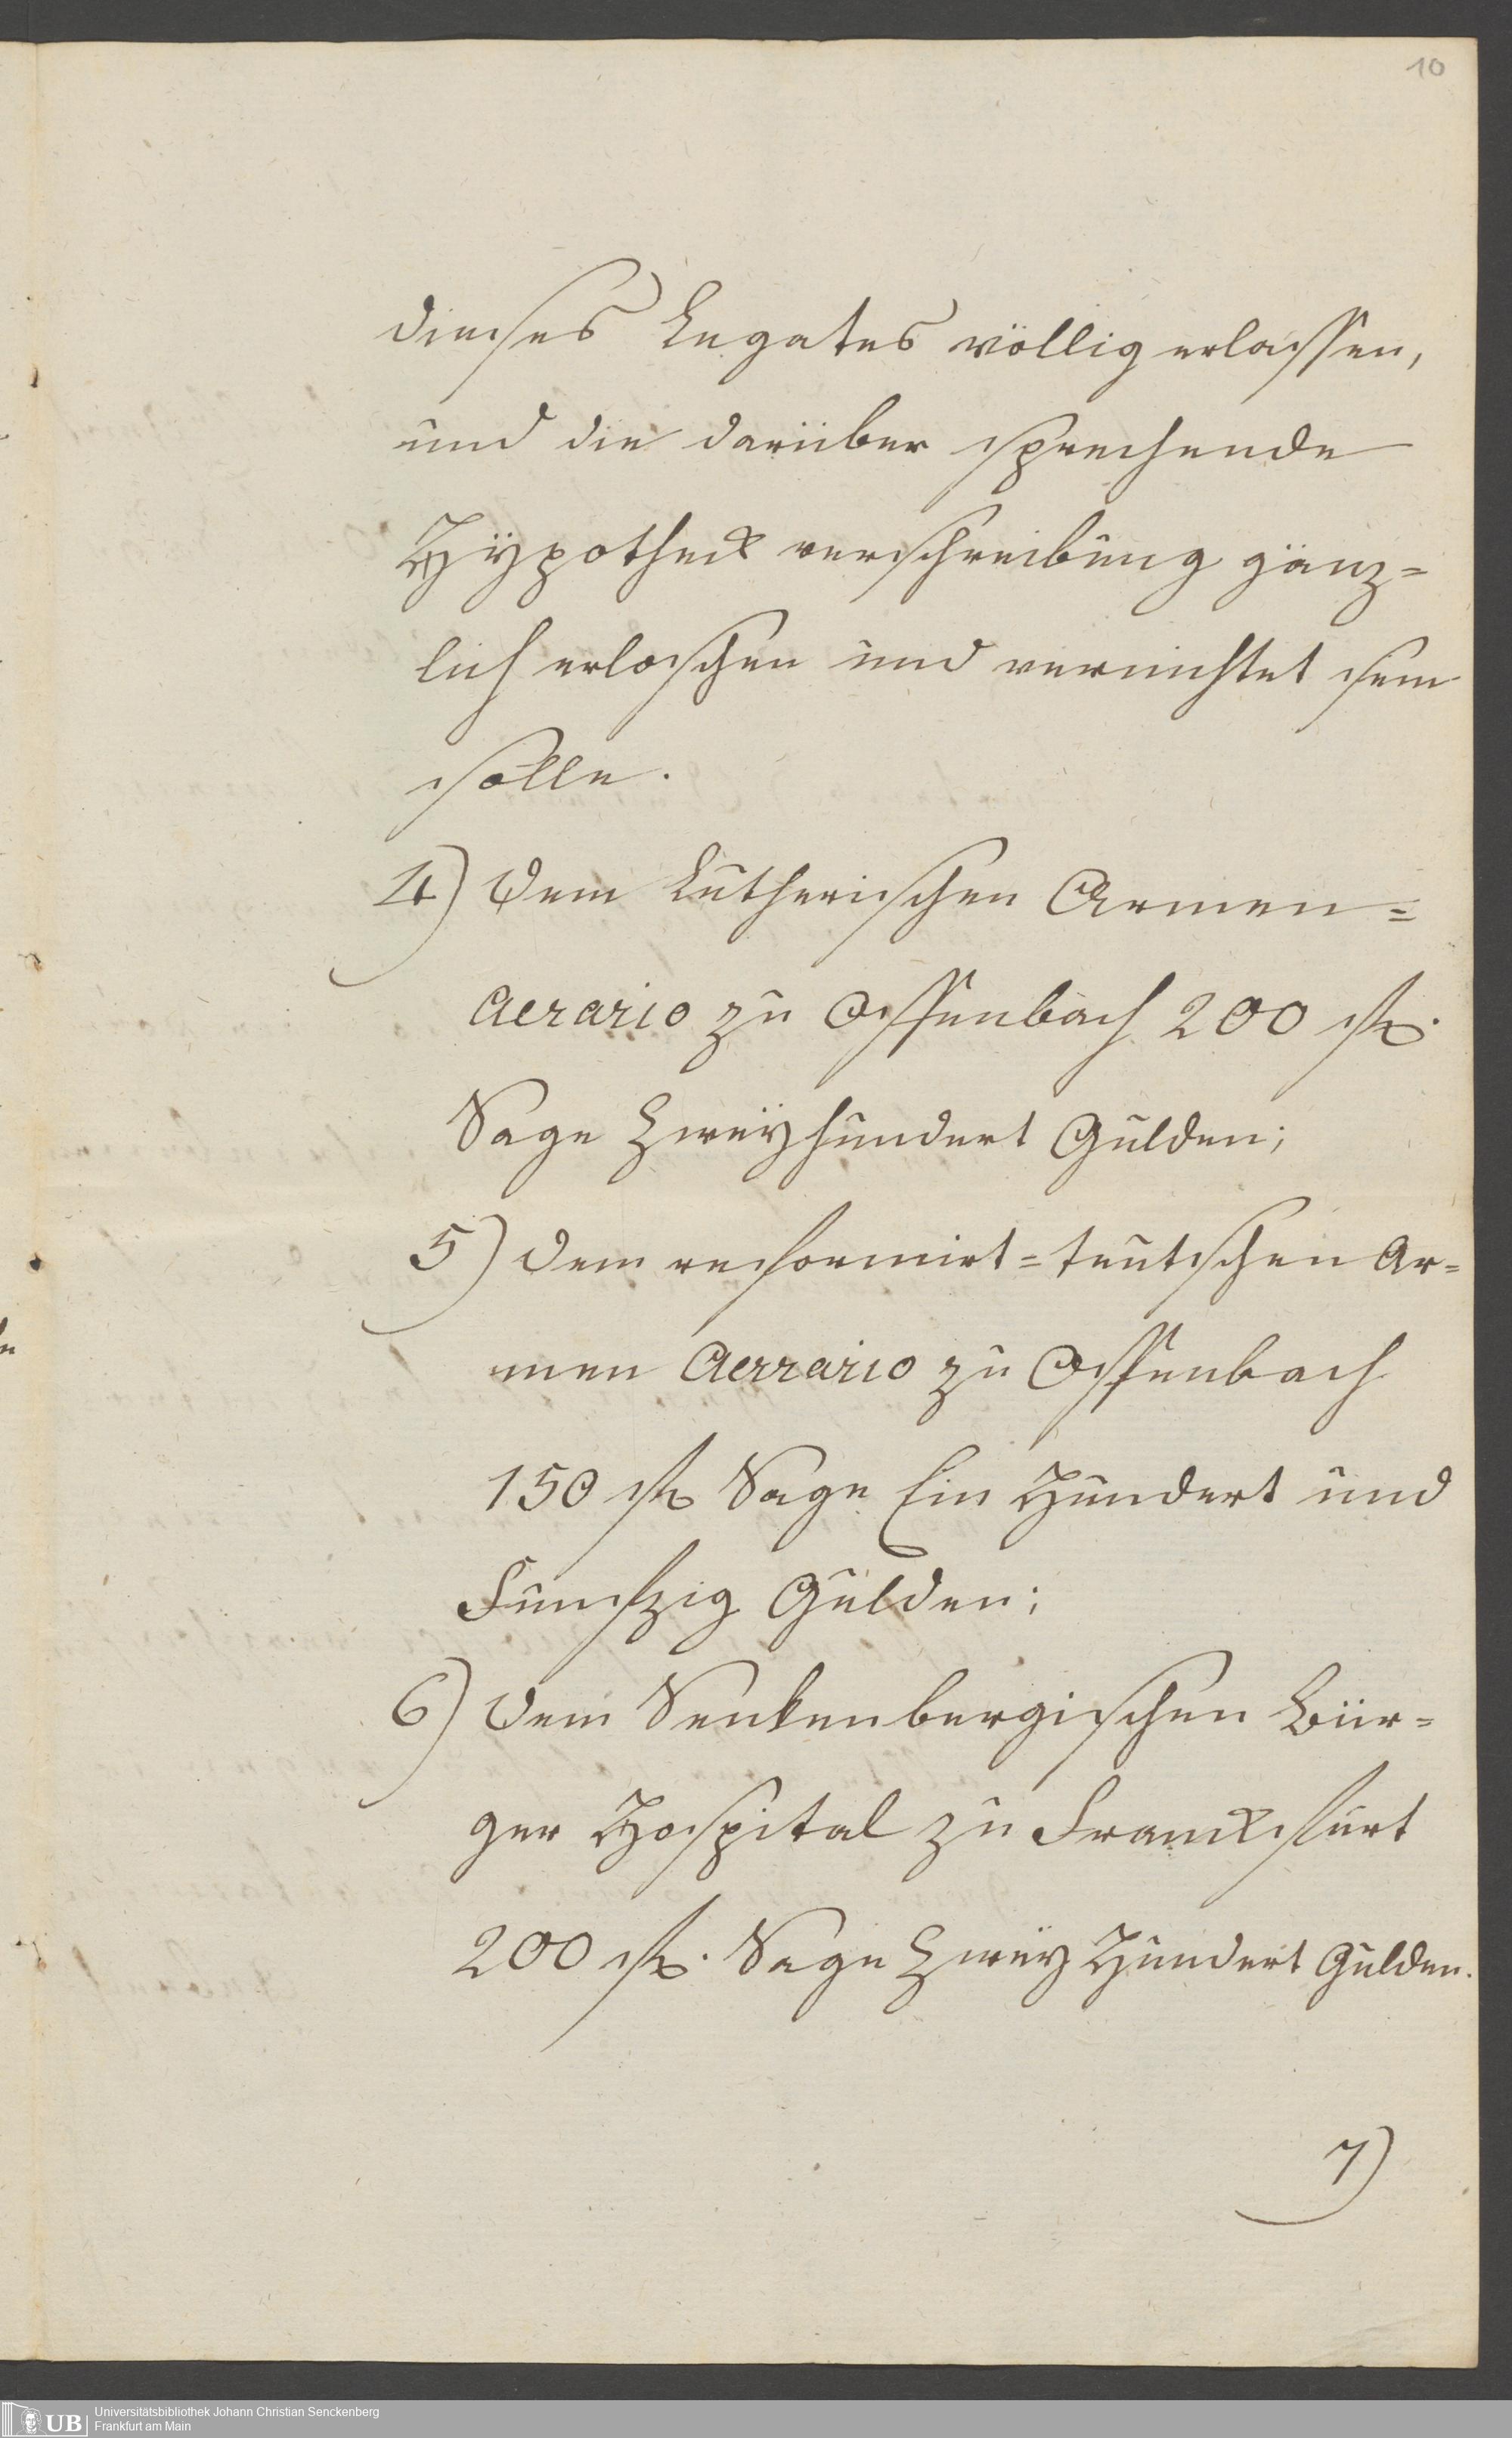 10
dieses Legates völlig erlassen,
und die darüber sprechende
Hÿpotheck verschreibung gänz=
lich erloschen und vernichtet sein
solle.
4) Dem Lutherischen Armen=
Aerario zu Offenbach 200 fl.
Sage Zweÿhundert Gulden;
5) Dem reformirt=teutschen Ar=
men Aerrario zu Offenbach
150 fl Sage Ein Hundert und
Funfzig Gulden;
6) Dem Senkenbergischen Bür=
ger Hospital zu Franckfurt
200 fl. Sage Zweÿ Hundert Gulden.
7)
UB Universitätsbibliothek Johann Christian Senckenberg
Frankfurt am Main